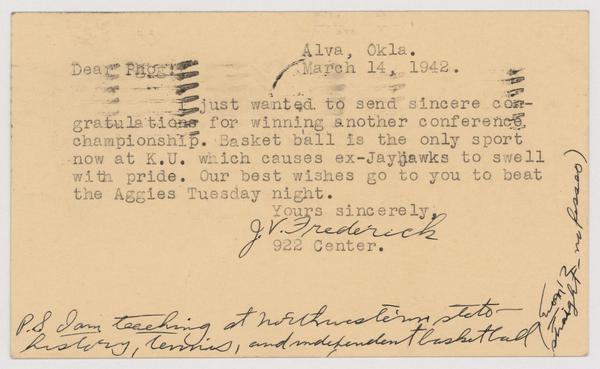 Alva, Okla.
Dear Phog: March 14, 1942.
I just wanted to send sincere con-
gratulations for winning another conference
championship. Basket ball is the only sport
now at K.U. which causes ex-Jayhawks to swell
with pride. Our best wishes go to you to beat
the Aggies Tuesday night.
Yours sincerely,
J.V. Frederick
922 Center.
P.S I am teaching at northwestern state
history, tennis, and independent basketball
(won 21
straight - no losses)